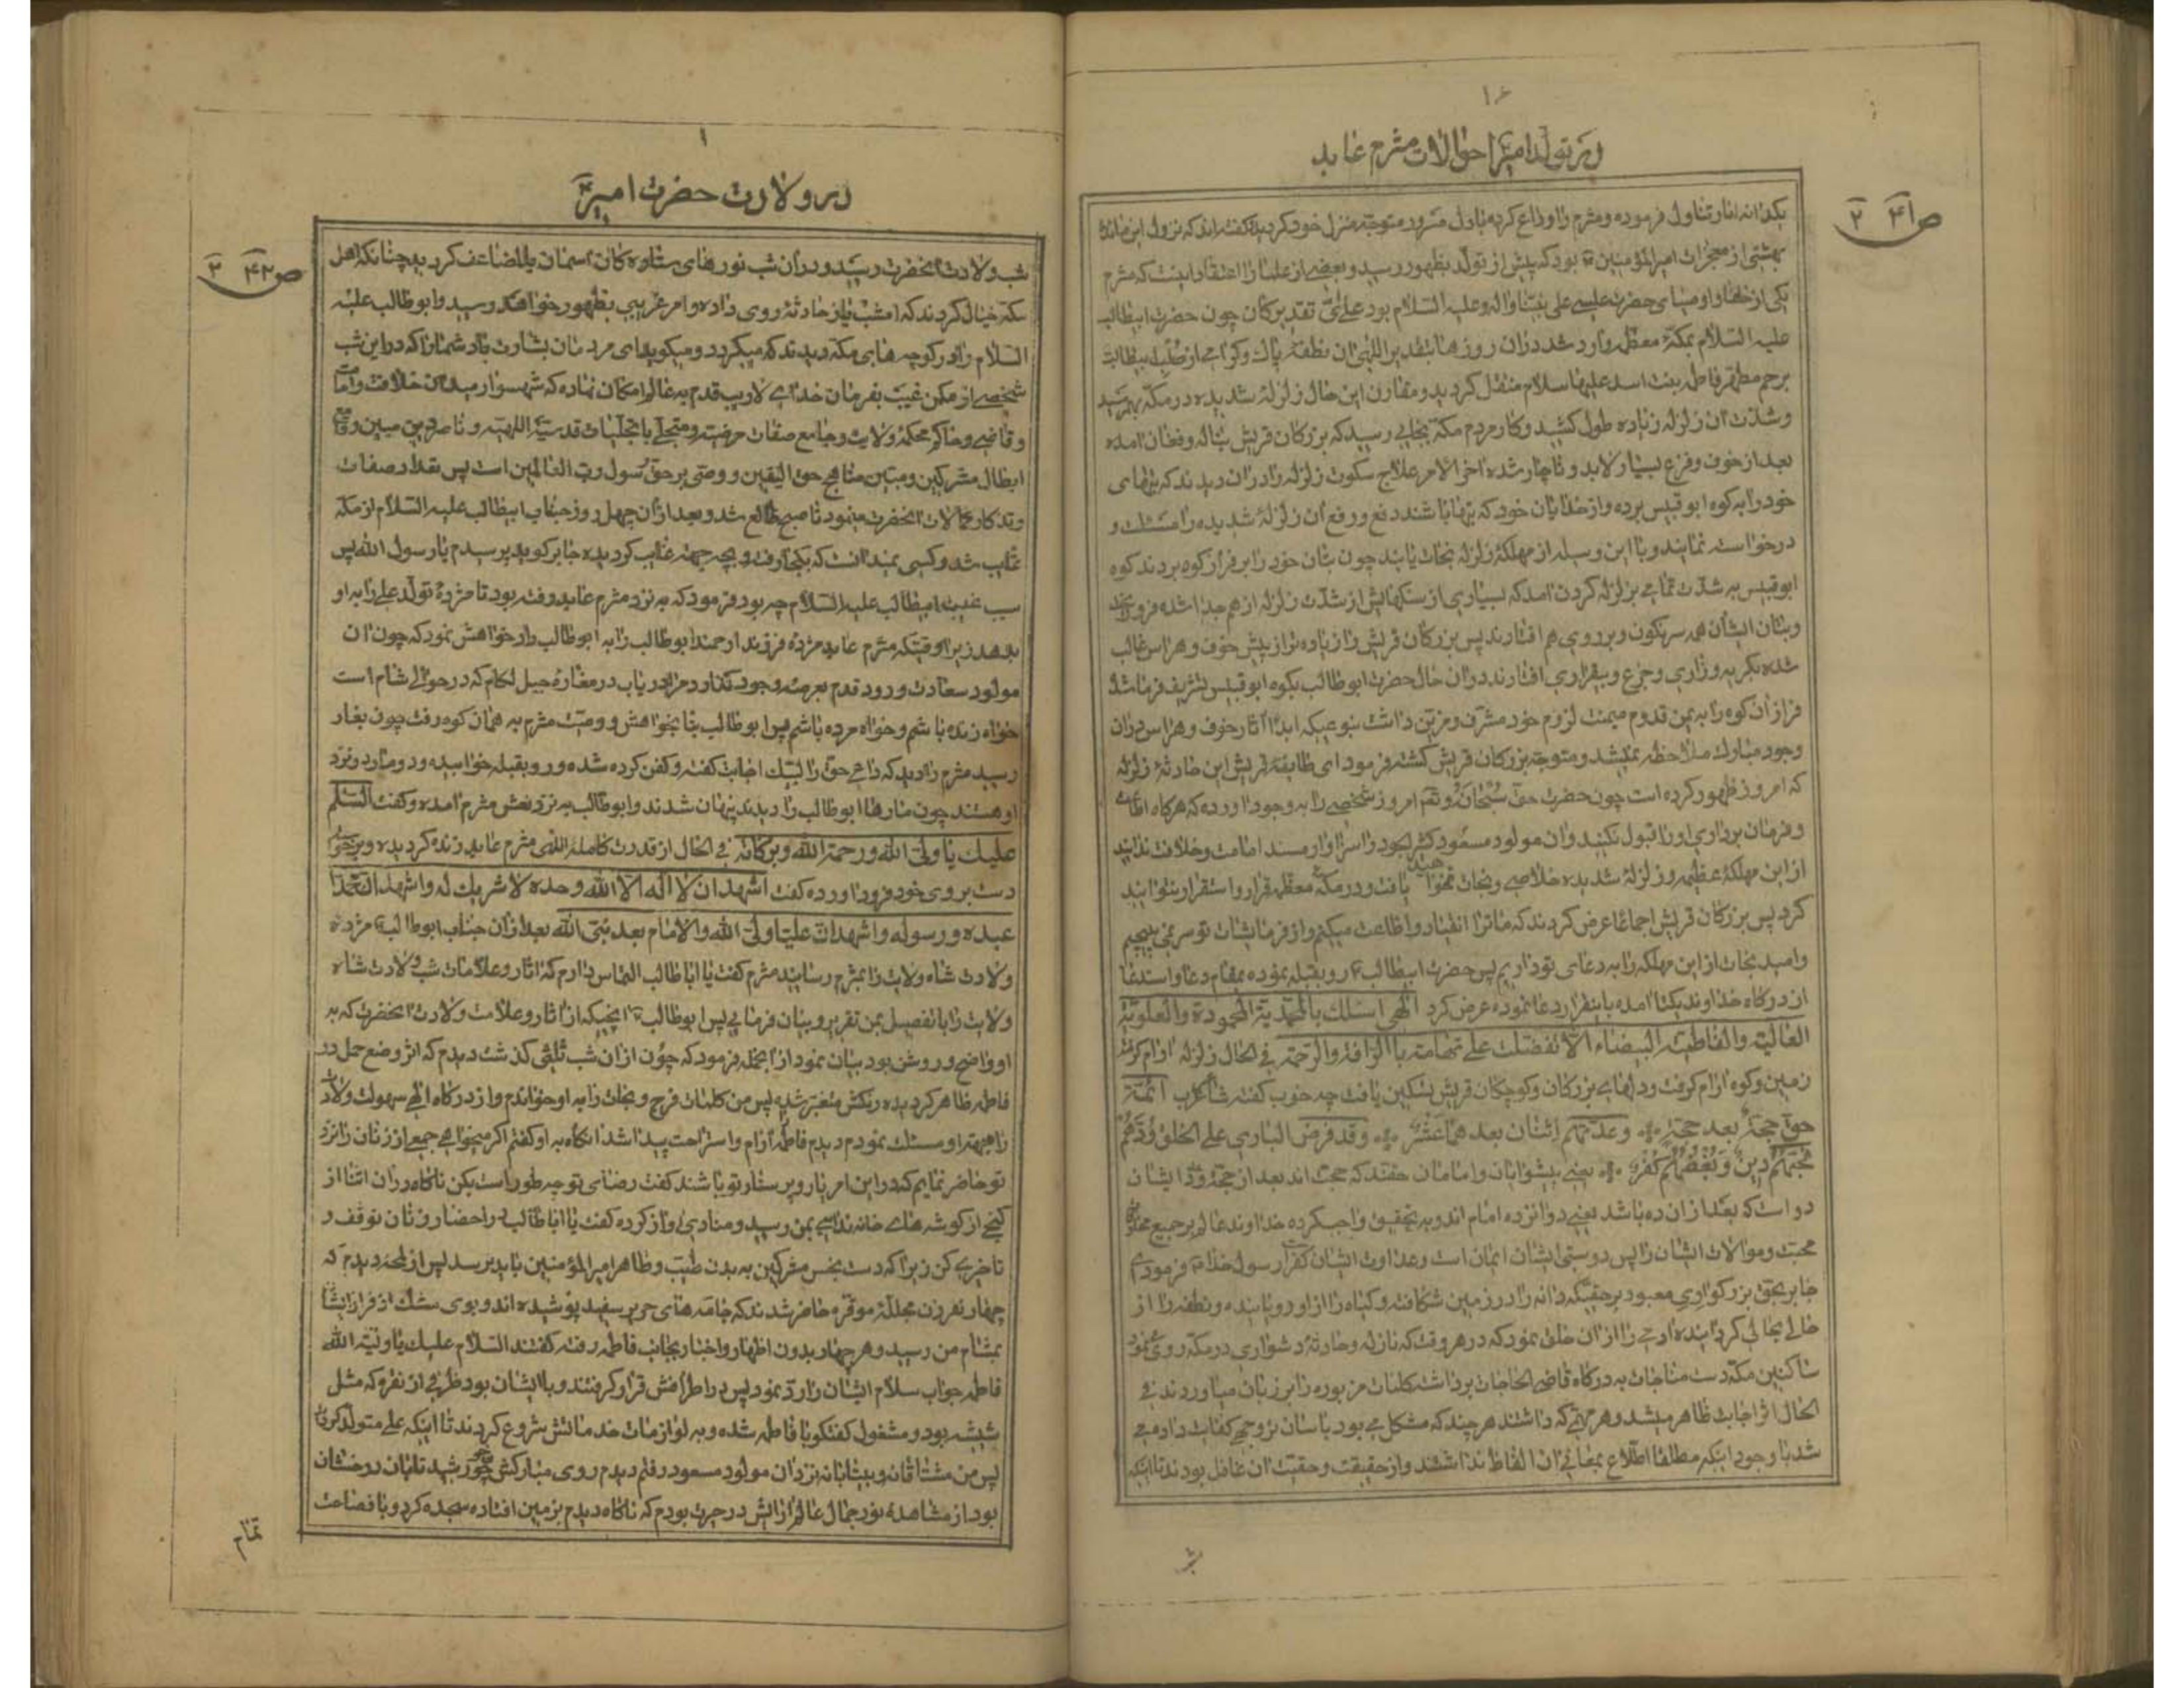 در تولد امیر و احوالات مثرم عابد
ص ۴۱ ۲
یکدانه انار تناول فرموده و مثرم را وداع کرده با دل مسرور متوجه منزل خود گردید گفته‌اند که نزول این مائده
بهشتی از معجزات امیرالمؤمنین ع بود که پیش از تولد بظهور رسید و بعضی از علما را اعتقاد اینست که مثرم
یکی از خلفا و اوصیای حضرت عیسی علی نبینا و اله و علیه السلام بود علی ای تقدیر کان چون حضرت ابیطالب
علیه السلام بمکه معظمه وارد شد در آن روزها بتقدیر اللهی آن نطفه پاک و گرامی از صلب ابیطالب
برحم مطهر فاطمه بنت اسد علیها سلام منتقل گردید و مقارن این حال زلزله شدیده در مکه بهمرسید
و شدت آن زلزله زیاده طول کشید و کار مردم مکه بجایی رسید که بزرگان قریش بناله و فغان امده
بعد از خوف و فزع بسیار لابد و ناچار شده اخر الامر علاج سکوت زلزله را در آن دیدند که بتهای
خود را به کوه ابو قبیس برده و از خدایان خود که بتها باشند دفع و رفع آن زلزله شدیده را مسئلت و
درخواست نمایند و با این وسیله از مهلکه زلزله نجات یابند چون بتان خود را بر فراز کوه بردند کوه
ابو قبیس به شدت تمامی بزلزله کردن امد که بسیاری از سنگهایش از شدت زلزله از هم جدا شده فرو ریخت
و بتان ایشان همه سرنگون و بر روی هم افتادند پس بزرگان قریش را زیاده‌تر از پیش خوف و هراس غالب
شده بگریه و زاری و جزع و بیقراری افتادند در آن حال حضرت ابو طالب بکوه ابو قبیس تشریف فرما شد
فراز آن کوه را به یمن قدوم میمنت لزوم خود مشرف و مزین داشت بنوعیکه ابدا آثار خوف و هراس در آن
وجود مبارک ملاحظه نمیشد و متوجه بزرگان قریش گشته فرمود ای طایفه قریش این حادثه زلزله
که امروز ظهور کرده است چون حضرت حق سبحانه و تعم امروز شخصی را به وجود اورده که هرگاه اطاعت
و فرمان برداری او را قبول نکنید و آن مولود مسعود کثیر الجود را سزاوار مسند امامت و خلافت ندانید
از این مهلکه عظیمه و زلزله شدیده خلاصی و نجات نخواهید یافت و در مکه معظمه قرار و استقرار نتوانید
کرد پس بزرگان قریش اجماعا عرض کردند که ما ترا انقیاد و اطاعت میکنیم و از فرمایشات تو سر نمی پیچیم
و امید نجات از این مهلکه را به دعای تو داریم پس حضرت ابیطالب ع رو بقبله نموده بمقام دعا و استدعا
از درگاه خداوند یکتا امده باینقرار دعا نموده عرض کرد الهی اسئلک بالمحمدیة المحمودة و العلویة
العالیة و الفاطمیة البیضاء الا تفضلت علی تهامة بالرافة و الرحمة فی الحال زلزله ارام گرفته
زمین و کوه ارام گرفت و دلهای بزرگان و کوچکان قریش تسکین یافت چه خوب گفته شاعر عرب ائمة
حق حجة بعد حجة و عدتهم اثنان بعدهما عشر و قد فرض الباری علی الخلق ودهم
محبتهم دین و بغضهم کفر یعنی پیشوایان و امامان حقند که حجت اند بعد از حجة و عدد ایشان
دو است که بعد از ان ده باشد یعنی دوازده امام اند و به تحقیق واجب کرده خداوند عالم بر جمیع مخلوق
محبت و موالات ایشان را پس دوستی ایشان ایمان است و عداوت ایشان کفر است رسول خدا ص فرمود ای
جابر بحق بزرگواری معبود برحقیکه دانه را در زمین شکافته و گیاه را از او رویانیده و نطفه را از
حالی بحالی گردانیده ادمی را از ان خلق نمود که در هر وقت که نازله و حادثه دشواری در مکه روی نمود
ساکنین مکه دست مناجات به درگاه قاضی الحاجات برداشته کلمات مزبوره را بر زبان میاوردند فی
الحال اثر اجابت ظاهر میشد و هر مهمی که داشتند هر چند که مشکل می بود باسان تر وجهی کفایت داده می
شد با وجود اینکه مطلقا اطلاع بمعانی ان الفاظ نداشتند و از حقیقت و حقیت ان غافل بودند تا اینکه
در ولادت حضرت امیر ع
ص ۴۲ ۲
شب ولادت آنحضرت رسید و در ان شب نورهای ستاره کان اسمان بالمضاعف گردید چنانکه اهل
مکه خیال کردند که امشب باز حادثه روی داده و امر غریبی بظهور خواهد رسید و ابو طالب علیه
السلام را در کوچه های مکه دیدند که میگردد و میگوید ای مردمان بشارت باد شما را که در این شب
شخصی از مکمن غیبت بفرمان خدای لاریب قدم به عالم امکان نهاده که شهسوار میدان خلافت و امامت
و قاضی و حاکم محکمه ولایت و جامع صفات مرضیه و متجلی با تجلیات قدسیة اللهیه و ناصر دین مبین و قامع
ابطال مشرکین و مبین مناهج حق الیقین و وصی بر حق رسول رب العالمین است پس تعداد صفات
و تذکار کمالات آنحضرت مینمود تا صبح طالع شد و بعد از ان چهل روز جناب ابیطالب علیه السلام از مکه
غایب شد و کسی نمیدانست که بکجا رفت و بچه جهة غایب گردیده جابر گوید پرسیدم یا رسول الله پس
سبب غیبت ابیطالب علیه السلام چه بود فرمود که به نزد مثرم عابد رفته بود تا مژده تولد علی را به او
بدهد زیرا وقتیکه مثرم عابد مژده فرزند ارجمند ابو طالب را به ابو طالب داد خواهش نمود که چون ان
مولود سعادت ورود قدم بعرصه وجود گذارد مرا دریاب در مغاره جبل لکام که در حوالی شام است
خواه زنده باشم و خواه مرده باشم پس ابو طالب بنا بخواهش و وصیت مثرم به همان کوه رفت چون بغار
رسید مثرم را دید که داعی حق را لبیک اجابت گفته و کفن کرده شده و رو بقبله خوابیده و دو مار در نزد
او هستند چون مارها ابو طالب را دیدند پنهان شدند و ابو طالب به نزد نعش مثرم امده و گفت السلم
علیک یا ولی الله و رحمة الله و برکاته فی الحال از قدرت کامله اللهی مثرم عابد زنده گردیده و برخواسته
دست بر روی خود فرود اورده گفت اشهد ان لا اله الا الله وحده لا شریک له و اشهد ان محمدا
عبده و رسوله و اشهد ان علیا ولی الله و الامام بعد نبی الله بعد از ان جناب ابو طالب ع مژده
ولادت شاه ولایت را بمثرم رسانید مثرم گفت یا ابا طالب التماس دارم که اثار و علامات شب ولادت شاه
ولایت را با تفصیل بمن تقریر و بیان فرمایی پس ابو طالب ع انچیکه از اثار و علامت ولادت انحضرت که به
او واضح و روشن بود بیان نمود از انجمله فرمود که چون از ان شب ثلثی گذشت دیدم که اثر وضع حمل در
فاطمه ظاهر گردیده رنگش متغیر شد پس من کلمات فرج و نجات را به او خواندم و از درگاه الهی سهولت ولادت
را جهة او مسئلت نمودم دیدم فاطمه را ارام و استراحت پیدا شد انگاه به او گفتم اگر میخواهی جمعی از زنان را نزد
تو حاضر نمایم که در این امر یار و پرستار تو باشند گفت رضای تو چه طور است بکن ناگاه در ان اثنا از
کنجی از گوشه های خانه ندایی بمن رسید و منادی اواز کرده گفت یا ابا طالب در احضار زنان توقف و
تاخیری کن زیرا که دست نجس مشرکین به بدن طیب و طاهر امیرالمؤمنین نباید برسد پس از لمحه دیدم که
چهار نفر زن مجلله موقره حاضر شدند که جامه های حریر سفید پوشیده اند و بوی مشک از فراز ایشان
بمشام من رسید و هر چهار بدون اظهار و اخبار بجانب فاطمه رفته گفتند السلام علیک یا ولیة الله
فاطمه جواب سلام ایشان را رد نمود پس در اطرافش قرار گرفتند و با ایشان بود ظرفی از نقره که مثل
شیشه بود و مشغول گفتگو با فاطمه شده و به لوازمات خدماتش شروع کردند تا اینکه علی متولد گردید
پس من مشتاقانه و بیتابانه نزد ان مولود مسعود رفتم دیدم روی مبارکش چون خورشید تابان درخشان
بود از مشاهده نور جمال عالم ارائش در حیرت بودم که ناگاه دیدم بزمین افتاده سجده کرد و با فصاحت
تمام